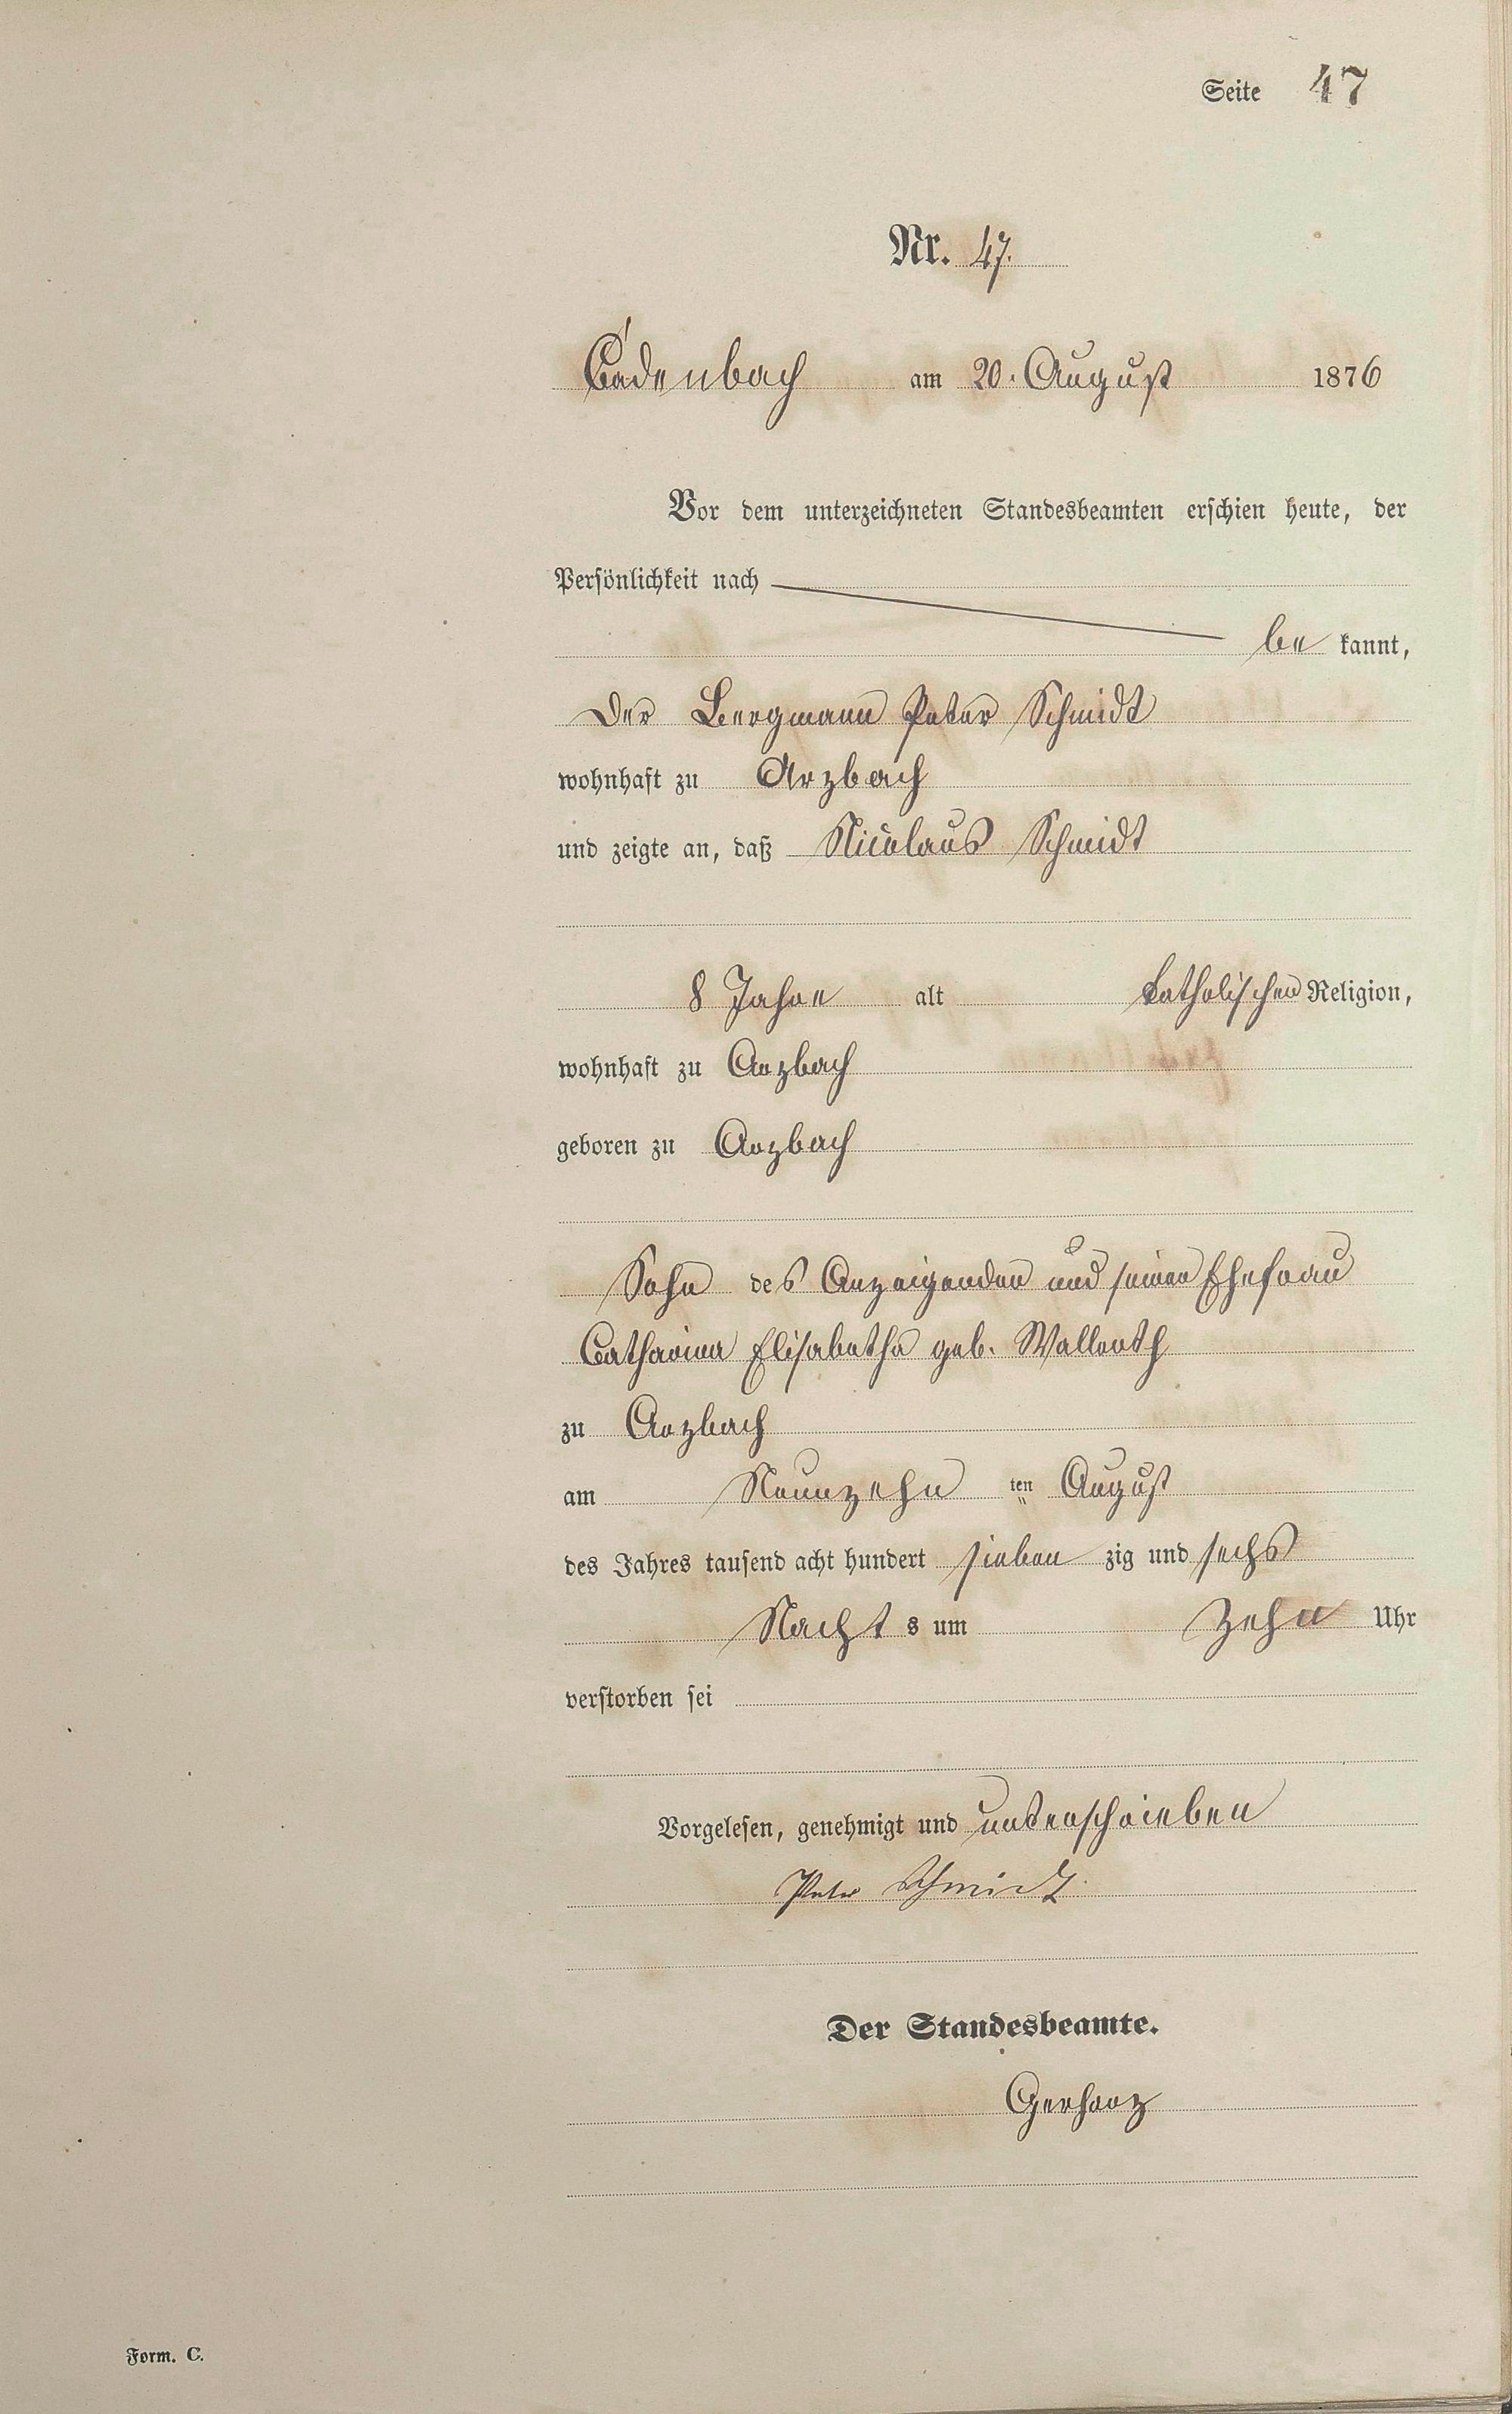 Seite 47
Nr. 47.
Cadenbach am 20. August 1876
Vor dem unterzeichneten Standesbeamten erschien heute, der
Persönlichkeit nach
be kannt,
Der Bergmann Peter Schmidt
wohnhaft zu Arzbach
und zeigte an, daß Nicolaus Schmidt
8 Jahre alt katholischer Religion,
wohnhaft zu Arzbach
geboren zu Arzbach
Sohn des Anzeigenden und seiner Ehefrau
Catharina Elisabetha geb. Wallroth
zu Arzbach
am Neunzehn ten August
des Jahres tausend acht hundert sieben zig und sechs
Nacht s um Zehn Uhr
verstorben sei
Vorgelesen, genehmigt und unterschrieben
Peter Schmidt
Der Standesbeamte.
Gerharz
Form. C.